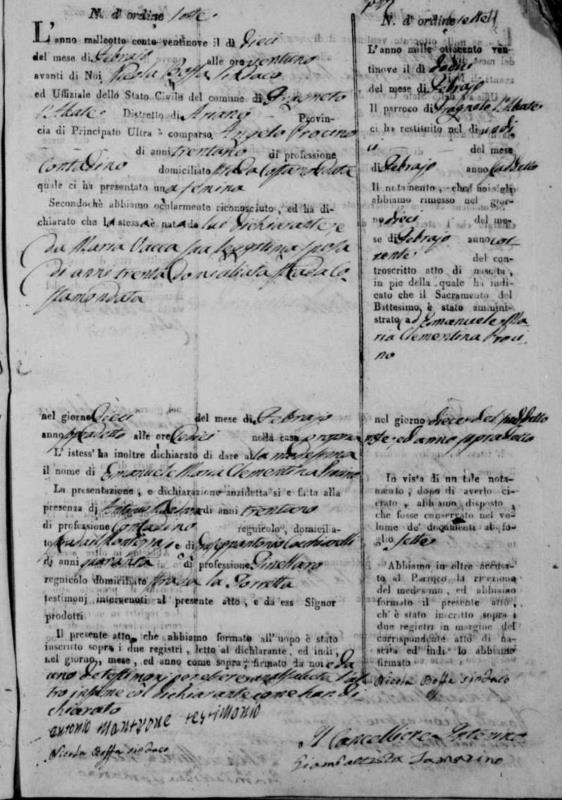 N. d'ordine sette
L'anno milleotto cento ventinove il dì dieci
del mese di Febrajo alle ore ventuno
avanti di Noi Nicola Boffa Sindaco
ed Uffiziale dello Stato Civile del comune di Fragneto
l'Abate Distretto di Ariano Provin-
cia di Principato Ultra è comparso Angelo Procino
di anni trentuno di professione
Contadino domiciliato Strada Costamondata
quale ci ha presentato una femina
Secondochè abbiamo ocularmente riconosciuto, ed ha di-
chiarato che la stessa è nata da lui dichiarante, e
da Maria Vacca sua legittima sposa
di anni trenta domiciliata Strada Co-
stamondata
nel giorno dieci del mese di Febrajo
anno suddetto alle ore sedici nella casa propria
L'istess' ha inoltre dichiarato di dare alla medesima
il nome di Emanuele Maria Clementina Procino
La presentazione, e dichiarazione anzidetta si è fatta alla
presenza di Antonio di anni trentuno
di professione Contadino regnicolo, domicilia-
to e di
di anni quaranta di professione
regnicolo domiciliato Strada la Torretta
testimonj intervenuti al presente atto, e da ess Signor
prodotti
Il presente atto, che abbiamo formato all'uopo è stato
inscritto sopra i due registri, letto al dichiarante, ed indi,
nel giorno, mese, ed anno come sopra, firmato da noi e da
uno de testimonj per avere asserito l'al-
tro insieme col dichiarante come han di
chiarato
antonio testimonio
Nicola Boffa sindaco
N. d'ordine sette
L'anno mille ottocento ven-
tinove il dì dodici
del mese di Febrajo
Il parroco di Fragneto l'Abate
ci ha restituito nel dì undi
ci del mese
di Febrajo anno suddetto
Il notamento, che noi gli
abbiamo rimesso nel gior-
no dieci del me-
se di Febrajo anno cor-
rente del con-
troscritto atto di nascita,
in piè della quale ha indi-
cato che il Sacramento del
Battesimo è stato ammini-
strato ad Emanuele Ma
ria Clementina Proci
no
nel giorno dieci del suddetto
mese ed anno sopradetto
In vista di un tale nota-
mento, dopo di averlo ci-
frato, abbiamo disposto,
che fosse conservato nel vo-
lume de' documenti al fo-
glio sette
Abbiamo in oltre accusa-
to al Parroco la ricezione
del medesimo, ed abbiamo
formato il presente atto,
ch'è stato inscritto sopra i
due registri in margine del
corrispondente atto di na-
scita ed indi lo abbiamo
firmato
Nicola Boffa sindaco
Il Cancelliere
Giambattista